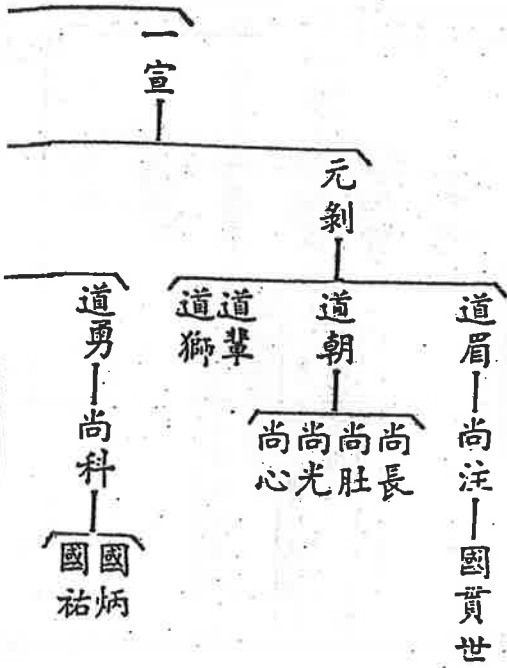 一宣
元剝
道眉
尚注
國貰世
道朝
尚長
尚肚
尚光
尚心
道輩
道獅
道勇
尚科
國炳
國祐